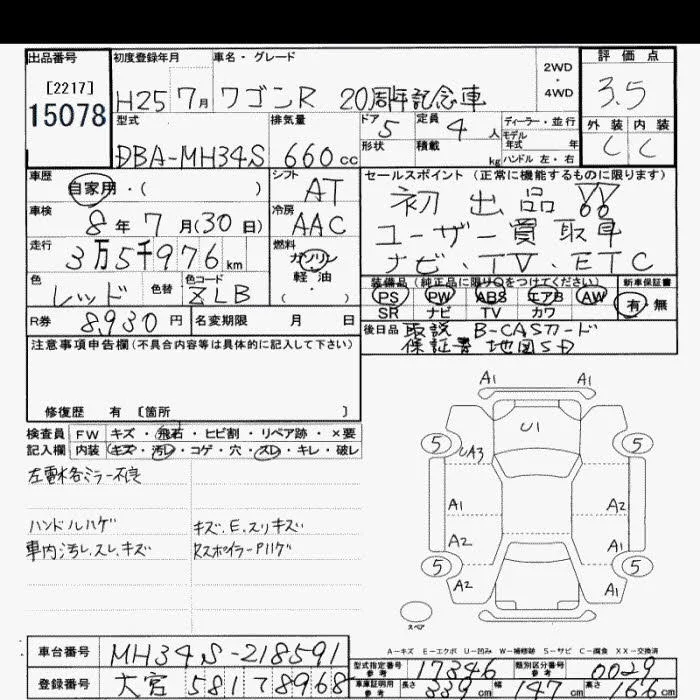 出品番号 初度登録年月 車名・グレード 2WD・4WD 評価点
[2217]
15078
H25 7月 ワゴンR 20周年記念車 3.5
型式 排気量 ドア 定員 ディーラー・並行
5 4人 モデル年式 年 外装 内装
DBA-MH34S 660cc 形状 積載 kg ハンドル 左・右 C C
車歴 シフト セールスポイント (正常に機能するものに限ります)
自家用・( ) AT
初出品
車検 冷房
8年7月(30日) AAC
ユーザー買取車
走行 燃料
3万5千976km ガソリン
軽・油
( )
ナビ、TV、ETC
色 色替 色コード
レッド ZLB
装備品 (純正品に限り○をつけてください) 新車保証書
PS PW ABS エアB AW 有・無
SR ナビ TV カワ
R券 8,930円 名変期限 月 日
後日品 取説 B-CASカード
保証書 地図SD
注意事項申告欄(不具合内容等は具体的に記入して下さい)
修復歴 有 [箇所 ]
検査員 FW キズ・飛石・ヒビ割・リペア跡・×要
記入欄 内装 キズ・汚レ・コゲ・穴・スレ・キレ・破レ
左電水各ミラー不良
ハンドルハゲ キズ.E.スリキズ
車内汚レ.スレ.キズ RスポイラーPハゲ
A1 A1
U1
5 5
UA3
A1 A2
A2 A1
5 5
A2 A1
スペア
A-キズ E-エクボ U-凹み W-補修跡 S-サビ C-腐食 XX-交換済
車台番号 MH34S-218591
型式指定番号 参考 17346 類別区分番号 参考 0029
登録番号 大宮 581 78968
車庫証明用 参考 長さ 339cm 幅 147cm 高さ 166cm